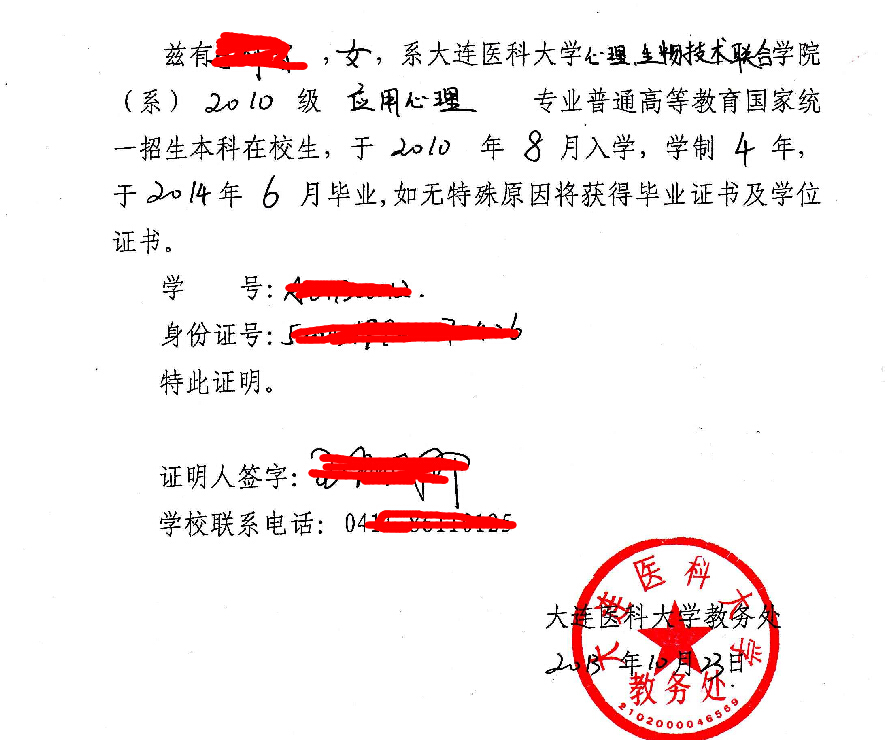 兹有 ，女，系大连医科大学心理生物技术联合学院
（系）2010 级 应用心理 专业普通高等教育国家统
一招生本科在校生，于 2010 年 8 月入学，学制 4 年，
于2014年 6 月毕业，如无特殊原因将获得毕业证书及学位
证书。
学 号：
身份证号：
特此证明。
证明人签字：
学校联系电话：
大连医科大学
大连医科大学教务处
2013 年10月23日
教务处
2102000046559